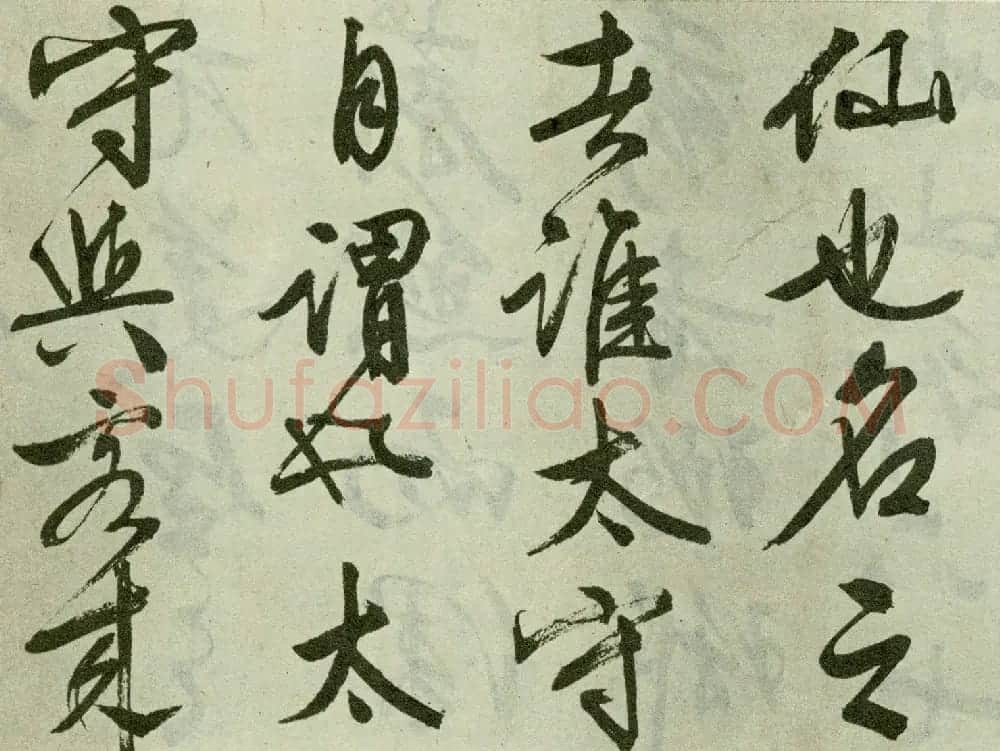 仙也名之
者誰太守
自謂也太
守與客來
Shufaziliao.COM